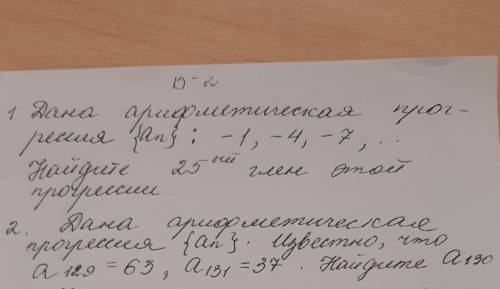 D-2
1 Дана арифметическая прог-
рессия {an}: -1, -4, -7, ..
Найдите 25ый член этой
прогрессии.
2. Дана арифметическая
прогрессия {an}. Известно, что
a129 = 63, a131 = 37. Найдите a130